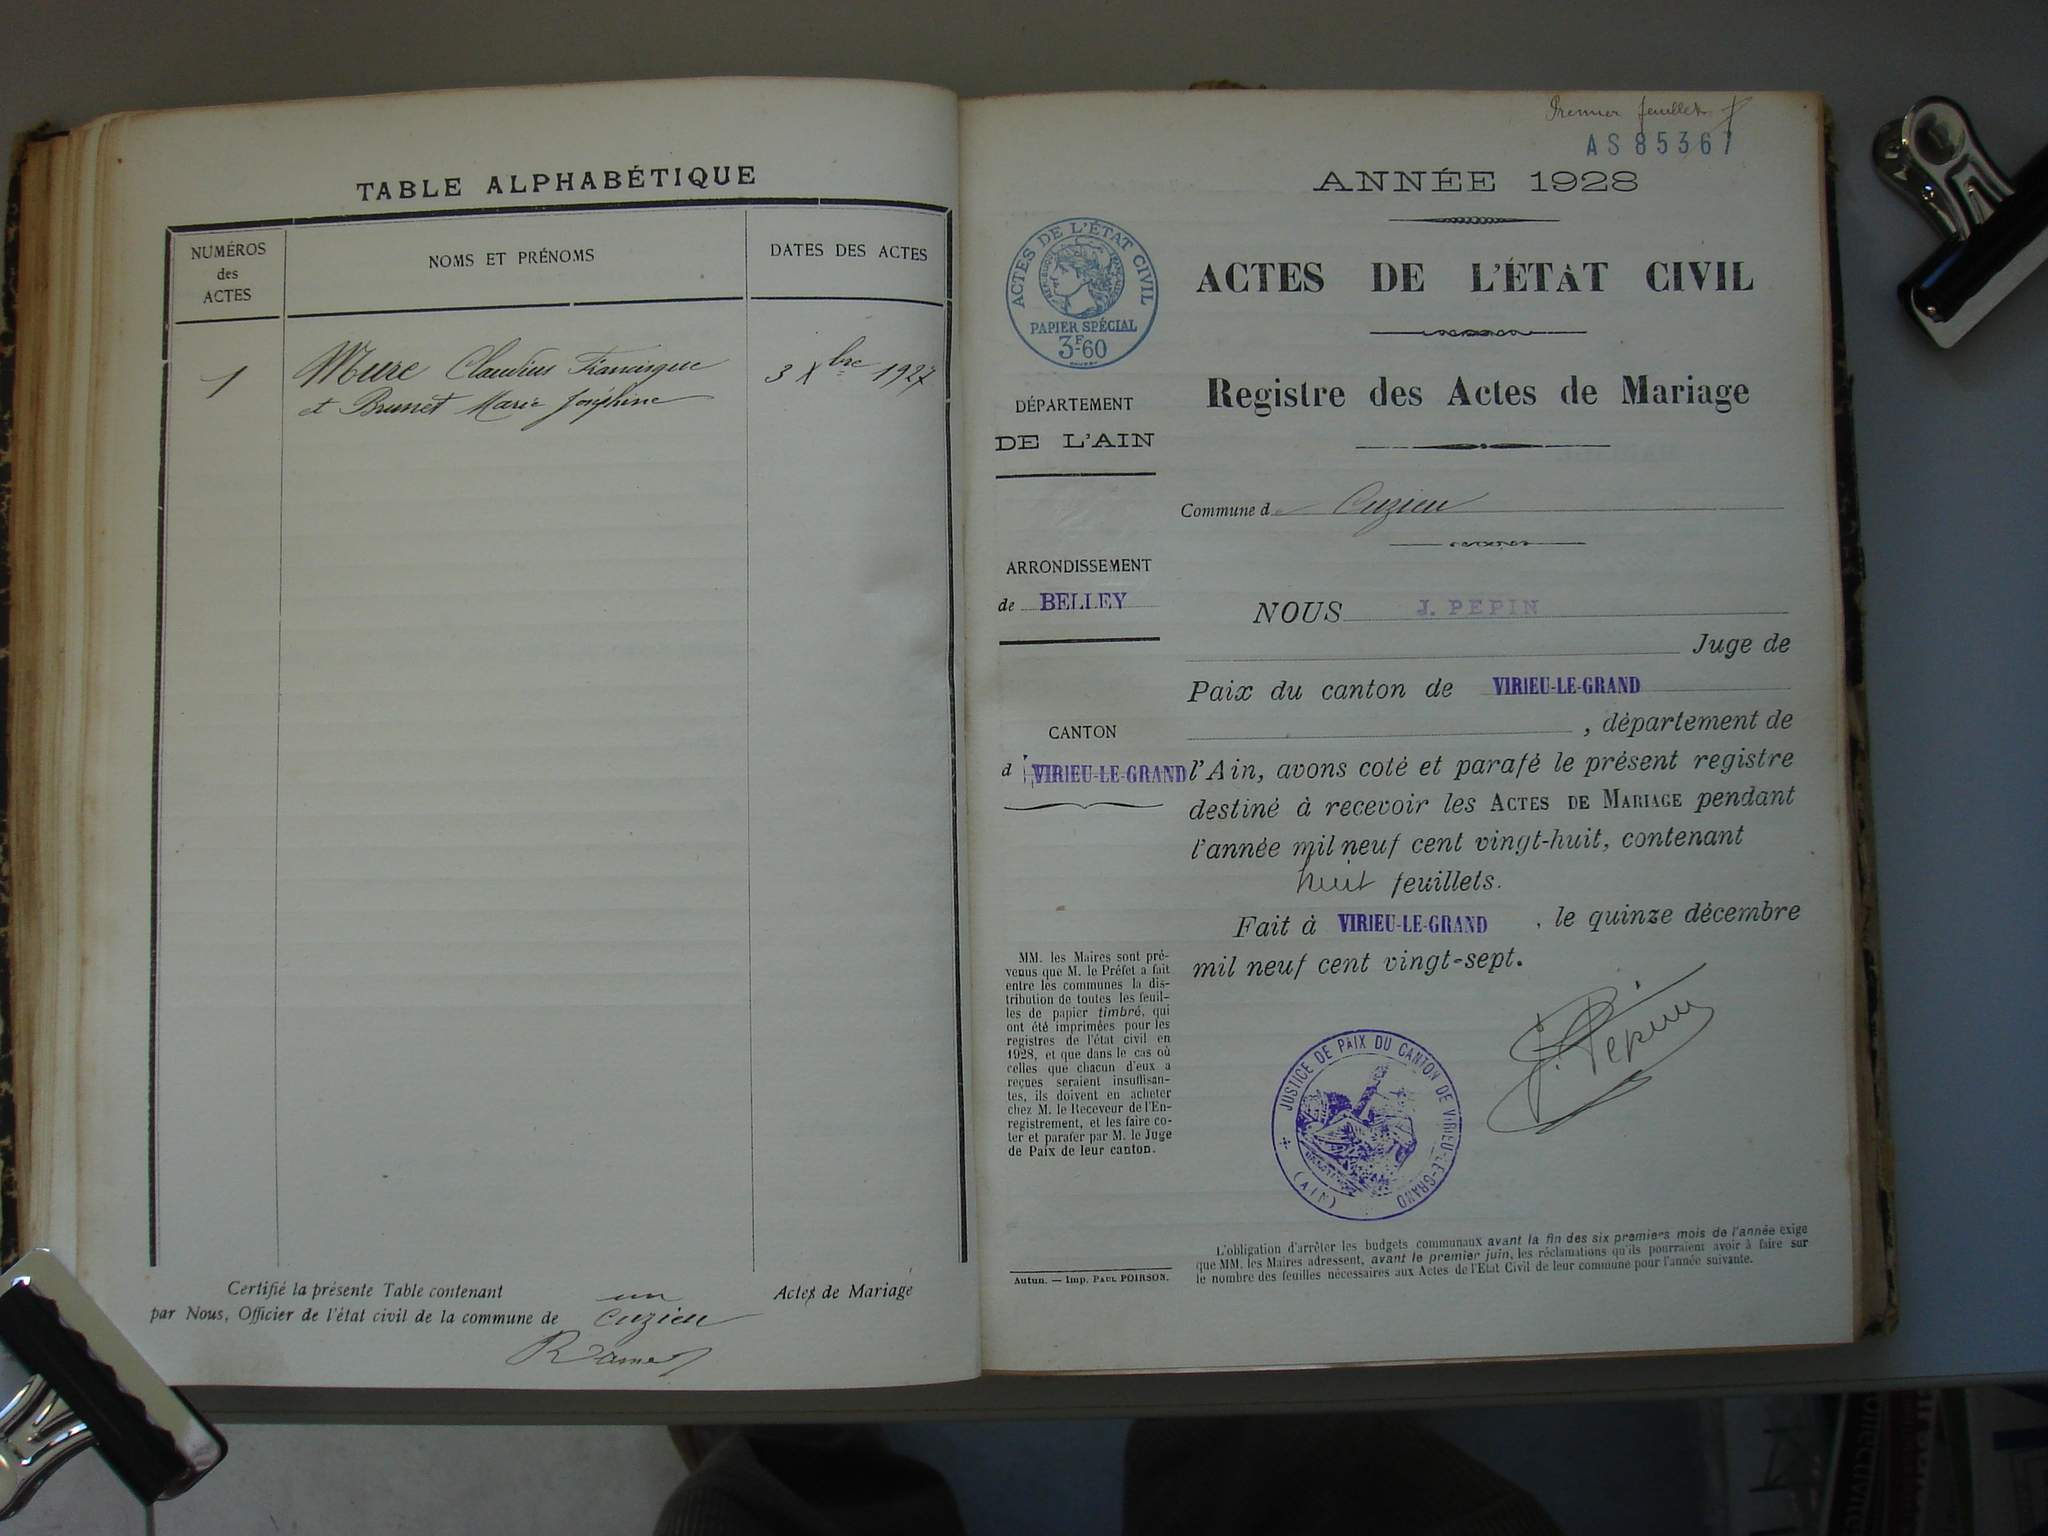 TABLE ALPHABÉTIQUE
NUMÉROS
des
ACTES
NOMS ET PRÉNOMS
DATES DES ACTES
1
Mure Claudius Francisque
et Brunet Marie Joséphine
3 Xbre 1927
Certifié la présente Table contenant un Actes de Mariage
par Nous, Officier de l'état civil de la commune de Cuzieu
Premier feuillet
AS 85367
ANNÉE 1928
ACTES DE L'ÉTAT CIVIL
RÉPUBLIQUE FRANÇAISE
PAPIER SPÉCIAL
3F60
ACTES DE L'ÉTAT CIVIL
Registre des Actes de Mariage
DÉPARTEMENT
DE L'AIN
Commune de Cuzieu
ARRONDISSEMENT
de BELLEY
CANTON
d VIRIEU-LE-GRAND
NOUS J. PEPIN
Juge de
Paix du canton de VIRIEU-LE-GRAND
, département de
l'Ain, avons coté et parafé le présent registre
destiné à recevoir les ACTES DE MARIAGE pendant
l'année mil neuf cent vingt-huit, contenant
huit feuillets.
Fait à VIRIEU-LE-GRAND , le quinze décembre
mil neuf cent vingt-sept.
J. Pepin
JUSTICE DE PAIX DU CANTON DE VIRIEU-LE-GRAND
(AIN)
MM. les Maires sont pré-
venus que M. le Préfet a fait
entre les communes la dis-
tribution de toutes les feuil-
les de papier timbré, qui
ont été imprimées pour les
registres de l'état civil en
1928, et que dans le cas où
celles que chacun d'eux a
reçues seraient insuffisan-
tes, ils doivent en acheter
chez M. le Receveur de l'En-
registrement, et les faire co-
ter et parafer par M. le Juge
de Paix de leur canton.
Autun. — Imp. PAUL POIRSON.
L'obligation d'arrêter les budgets communaux avant la fin des six premiers mois de l'année exige
que MM. les Maires adressent, avant le premier juin, les réclamations qu'ils pourraient avoir à faire sur
le nombre des feuilles nécessaires aux Actes de l'Etat Civil de leur commune pour l'année suivante.